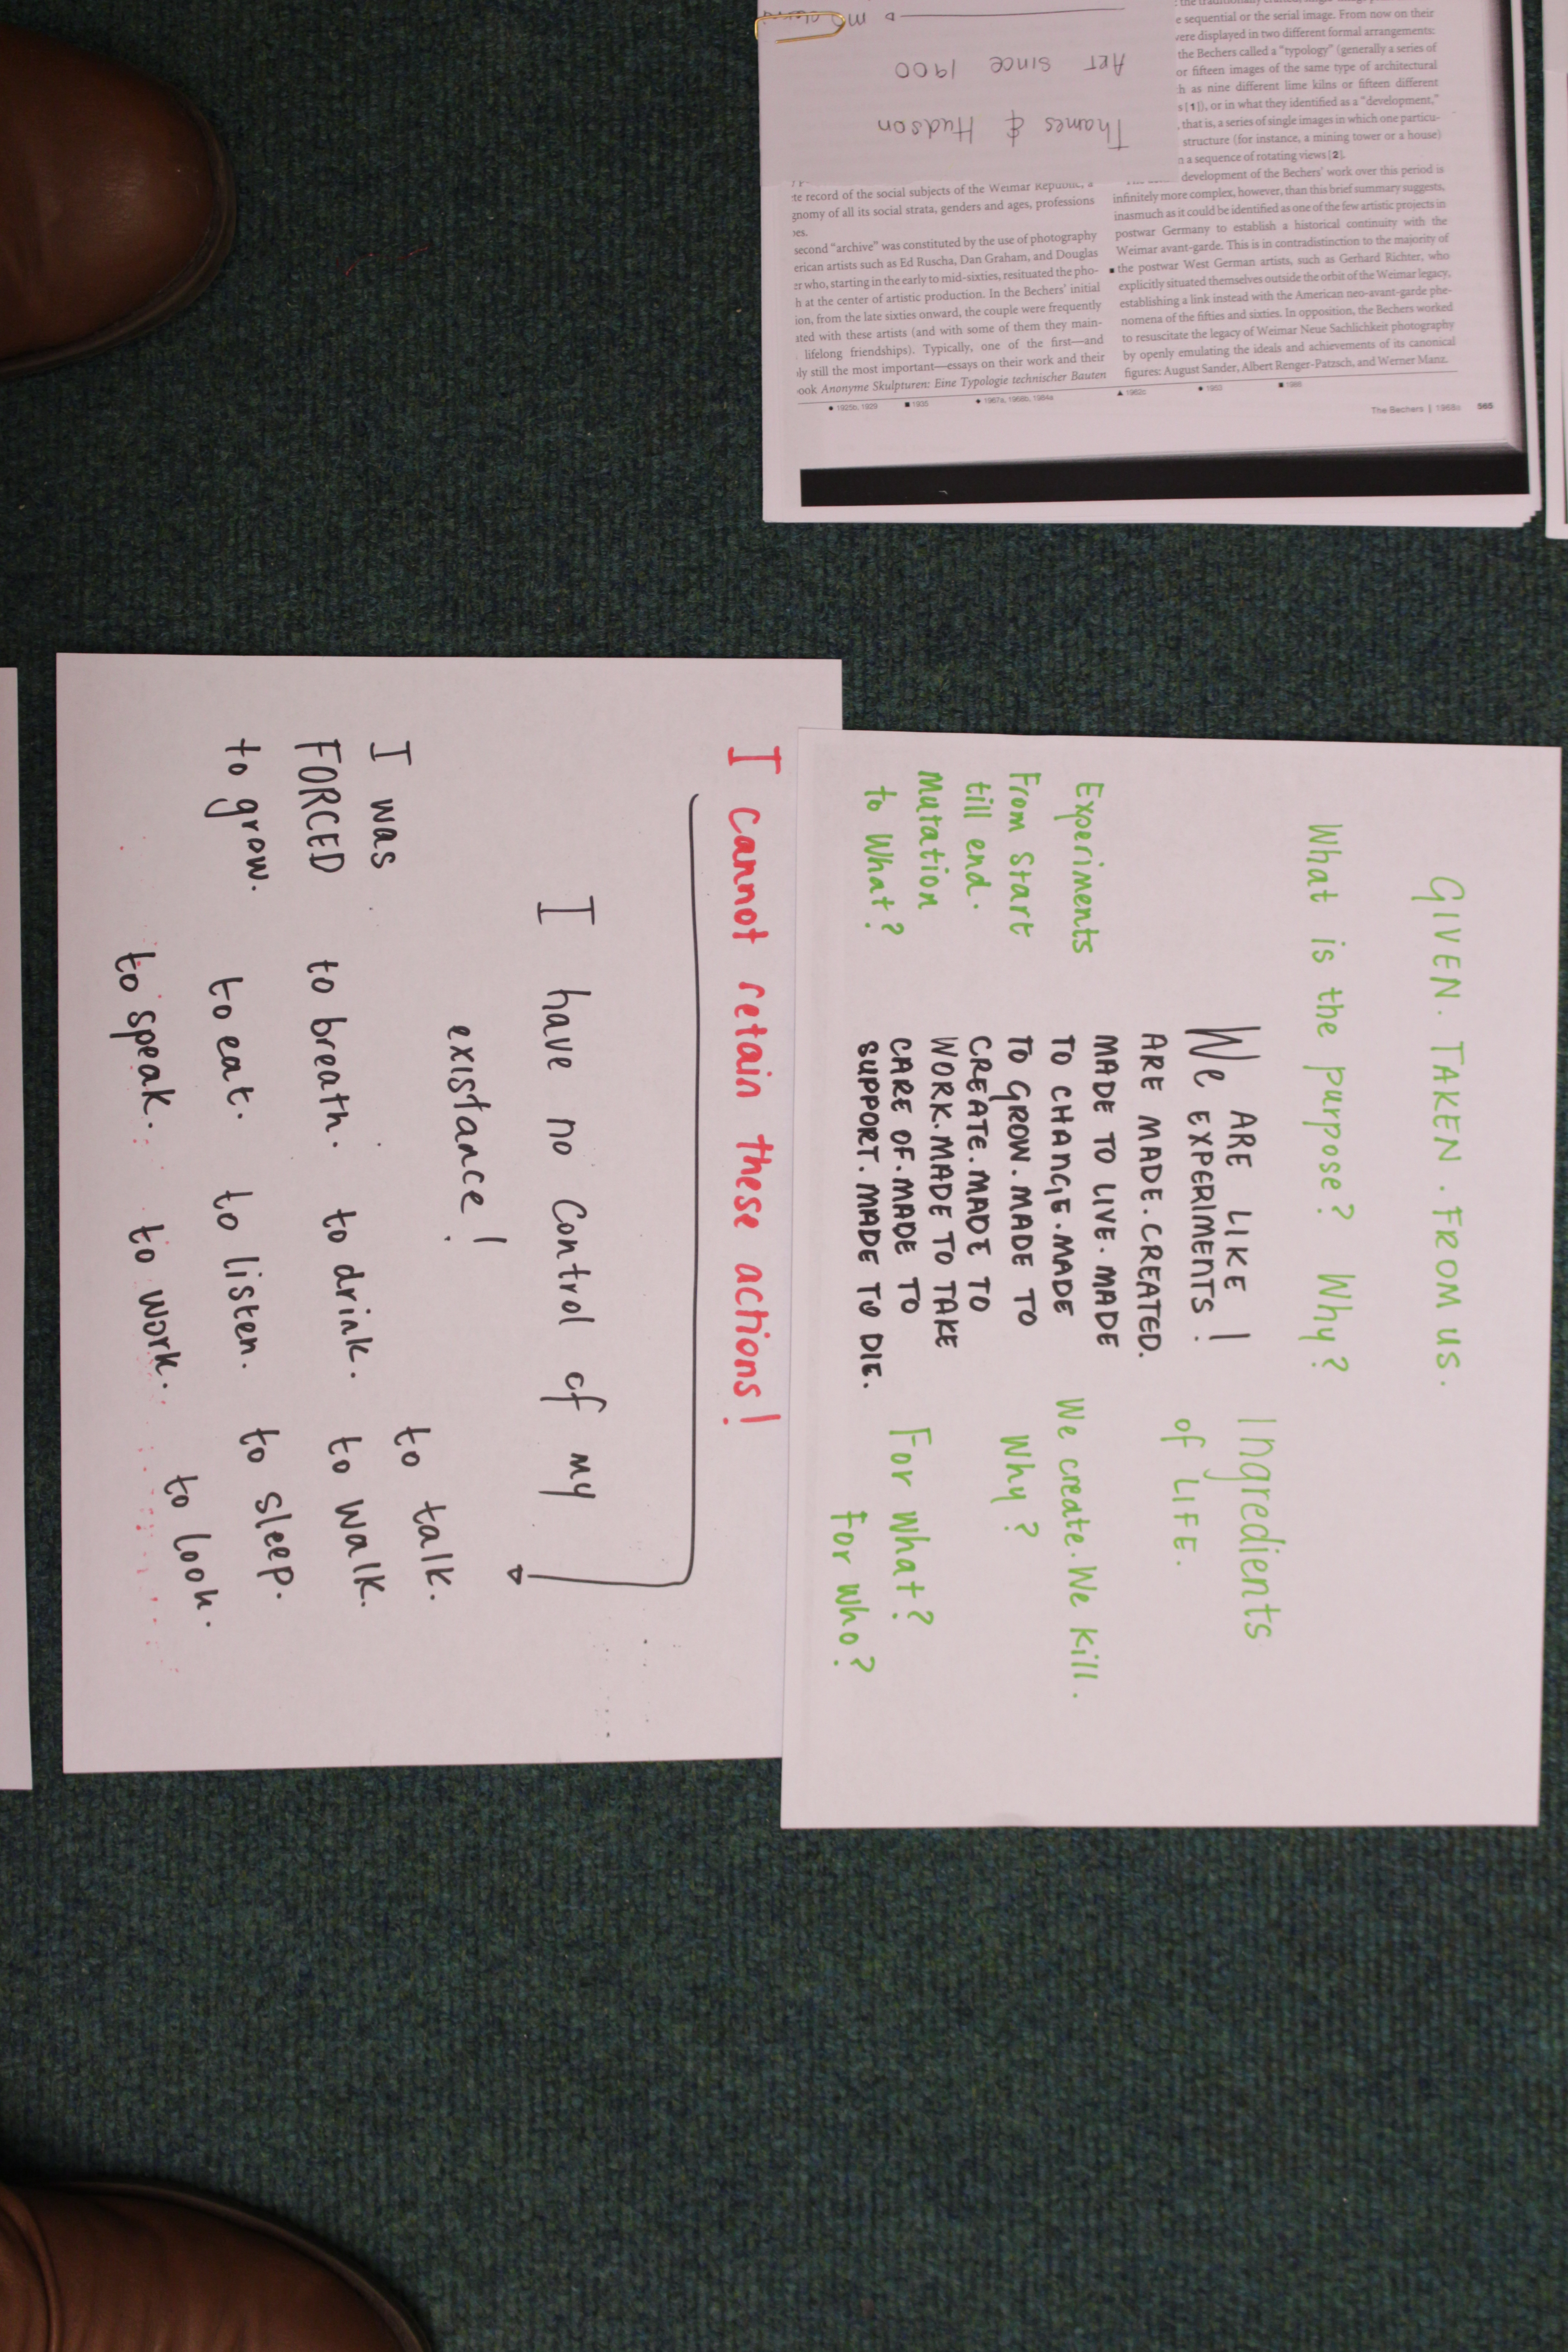 GIVEN. TAKEN. FROM US.
What is the purpose? Why?
Ingredients
of LIFE.
We ARE LIKE
EXPERIMENTS!
ARE MADE. CREATED.
MADE TO LIVE. MADE
TO CHANGE. MADE
TO GROW. MADE TO
CREATE. MADE TO
WORK. MADE TO TAKE
CARE OF. MADE TO
SUPPORT. MADE TO DIE.
Experiments
From Start
till end.
Mutation
to What?
We create. We Kill.
Why?
For what?
For who?
I cannot retain these actions!
I have no control of my
existance!
I was
FORCED
to grow.
to breath.
to drink.
to talk.
to walk.
to eat.
to listen.
to sleep.
to speak.
to work.
to look.
Thames & Hudson
Art since 1900
te record of the social subjects of the Weimar Republic, a
gnomy of all its social strata, genders and ages, professions
second "archive" was constituted by the use of photography
erican artists such as Ed Ruscha, Dan Graham, and Douglas
er who, starting in the early to mid-sixties, resituated the pho-
h at the center of artistic production. In the Bechers' initial
ion, from the late sixties onward, the couple were frequently
ated with these artists (and with some of them they main-
lifelong friendships). Typically, one of the first—and
ly still the most important—essays on their work and their
ook Anonyme Skulpturen: Eine Typologie technischer Bauten
e sequential or the serial image. From now on their
were displayed in two different formal arrangements:
the Bechers called a "typology" (generally a series of
or fifteen images of the same type of architectural
h as nine different lime kilns or fifteen different
s [1]), or in what they identified as a "development,"
, that is, a series of single images in which one particu-
structure (for instance, a mining tower or a house)
n a sequence of rotating views [2].
development of the Bechers' work over this period is
infinitely more complex, however, than this brief summary suggests,
inasmuch as it could be identified as one of the few artistic projects in
postwar Germany to establish a historical continuity with the
Weimar avant-garde. This is in contradistinction to the majority of
■ the postwar West German artists, such as Gerhard Richter, who
explicitly situated themselves outside the orbit of the Weimar legacy,
establishing a link instead with the American neo-avant-garde phe-
nomena of the fifties and sixties. In opposition, the Bechers worked
to resuscitate the legacy of Weimar Neue Sachlichkeit photography
by openly emulating the ideals and achievements of its canonical
figures: August Sander, Albert Renger-Patzsch, and Werner Manz.
● 1925b, 1929 ■ 1935 ◆ 1967a, 1968b, 1984a ▲ 1962c ● 1953 ■ 1988
The Bechers | 1968b 565